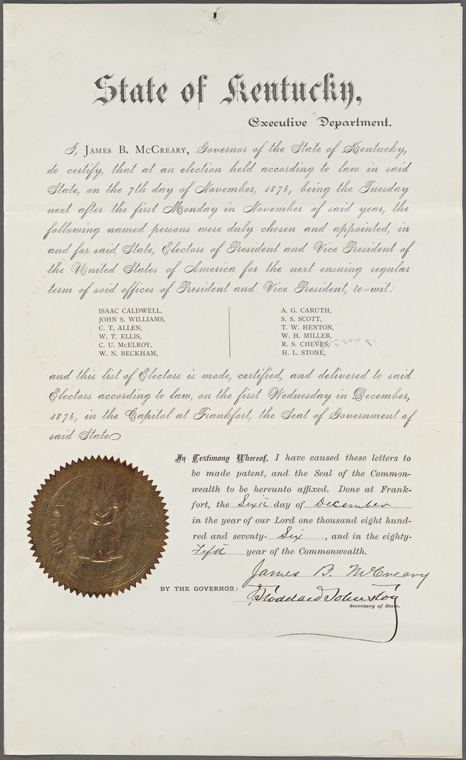 State of Kentucky,
Executive Department.
I, JAMES B. MCCREARY, Governor of the State of Kentucky,
do certify, that at an election held according to law in said
State, on the 7th day of November, 1876, being the Tuesday
next after the first Monday in November of said year, the
following named persons were duly chosen and appointed, in
and for said State, Electors of President and Vice President of
the United States of America for the next ensuing regular
term of said offices of President and Vice President, to-wit:
ISAAC CALDWELL,
JOHN S. WILLIAMS,
C. T. ALLEN,
W. T. ELLIS,
C. U. McELROY,
W. N. BECKHAM,
A. G. CARUTH,
S. S. SCOTT,
T. W. HENTON,
W. H. MILLER,
R. S. CHEVES,
H. L. STONE,
and this list of Electors is made, certified, and delivered to said
Electors according to law, on the first Wednesday in December,
1876, in the Capitol at Frankfort, the Seat of Government of
said State
In Testimony Whereof, I have caused these letters to
be made patent, and the Seal of the Common-
wealth to be hereunto affixed. Done at Frank-
fort, the Sixth day of December
in the year of our Lord one thousand eight hund-
red and seventy- Six, and in the eighty-
Fifth year of the Commonwealth.
James B. McCreary
BY THE GOVERNOR:
J. Stoddard Johnston
Secretary of State.